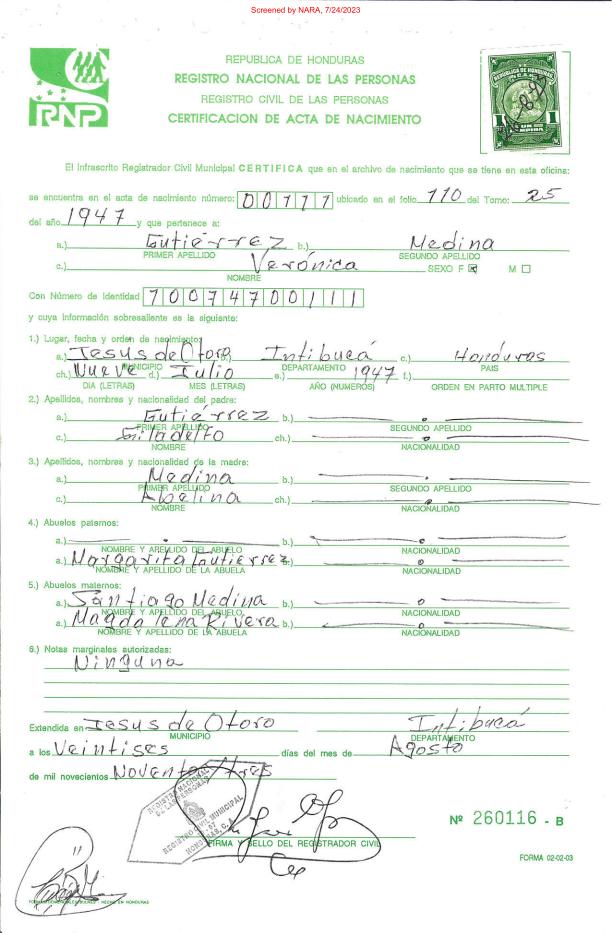 Screened by NARA, 7/24/2023
REPUBLICA DE HONDURAS
REGISTRO NACIONAL DE LAS PERSONAS
REGISTRO CIVIL DE LAS PERSONAS
CERTIFICACION DE ACTA DE NACIMIENTO
RNP
REPUBLICA DE HONDURAS
1 UN LEMPIRA 1
El Infrascrito Registrador Civil Municipal CERTIFICA que en el archivo de nacimiento que se tiene en esta oficina:
se encuentra en el acta de nacimiento número: 00111 ubicado en el folio 110 del Tomo: 25
del año 1947 y que pertenece a:
a.) Gutiérrez b.) Medina
PRIMER APELLIDO SEGUNDO APELLIDO
c.) Verónica SEXO F ☒ M ☐
NOMBRE
Con Número de Identidad 1007470011 1
y cuya información sobresaliente es la siguiente:
1.) Lugar, fecha y orden de nacimiento:
a.) Jesus de Otoro b.) Intibucá c.) Honduras
MUNICIPIO DEPARTAMENTO PAIS
ch.) Nueve d.) Julio e.) 1947 f.)
DIA (LETRAS) MES (LETRAS) AÑO (NUMEROS) ORDEN EN PARTO MULTIPLE
2.) Apellidos, nombres y nacionalidad del padre:
a.) Gutiérrez b.)
PRIMER APELLIDO SEGUNDO APELLIDO
c.) ch.)
NOMBRE NACIONALIDAD
3.) Apellidos, nombres y nacionalidad de la madre:
a.) Medina b.)
PRIMER APELLIDO SEGUNDO APELLIDO
c.) Abelina ch.)
NOMBRE NACIONALIDAD
4.) Abuelos paternos:
a.) b.)
NOMBRE Y APELLIDO DEL ABUELO NACIONALIDAD
a.) Margarita Gutierrez b.)
NOMBRE Y APELLIDO DE LA ABUELA NACIONALIDAD
5.) Abuelos maternos:
a.) Santiago Medina b.)
NOMBRE Y APELLIDO DEL ABUELO
a.) Magdalena Rivera b.)
NOMBRE Y APELLIDO DE LA ABUELA NACIONALIDAD
6.) Notas marginales autorizadas:
Ninguna
Extendida en Jesus de Otoro Intibucá
MUNICIPIO DEPARTAMENTO
a los Veintises días del mes de Agosto
de mil novecientos Noventa y tres
REGISTRO NACIONAL DE LAS PERSONAS
REGISTRO CIVIL MUNICIPAL
HONDURAS, C. A.
Nº 260116 - B
FIRMA Y SELLO DEL REGISTRADOR CIVIL
FORMA 02-02-03